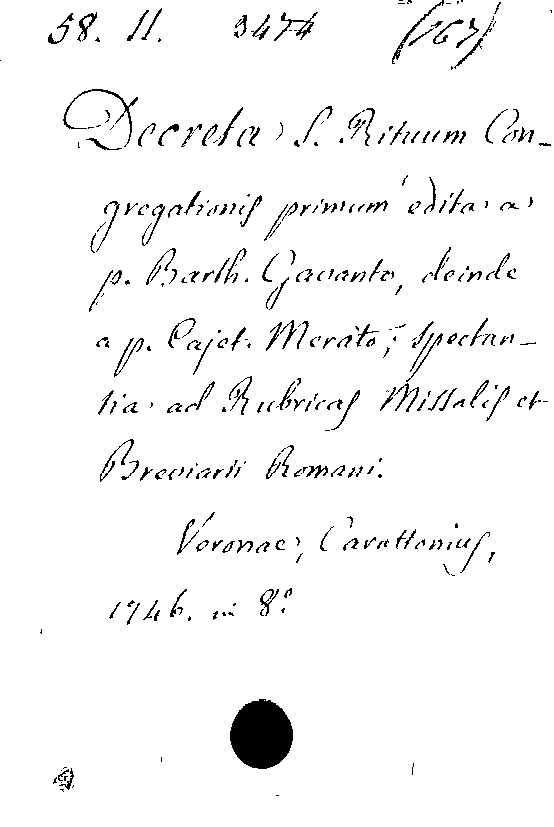 58. II. 3474 (767)
Decreta S. Rituum Con-
gregationis primum edita a
p. Barth. Gavanto, deinde
a p. Cajet. Merato, spectan-
tia ad Rubricas Missalis et
Breviarii Romani.
Veronae, Carattonius,
1746. in 8º